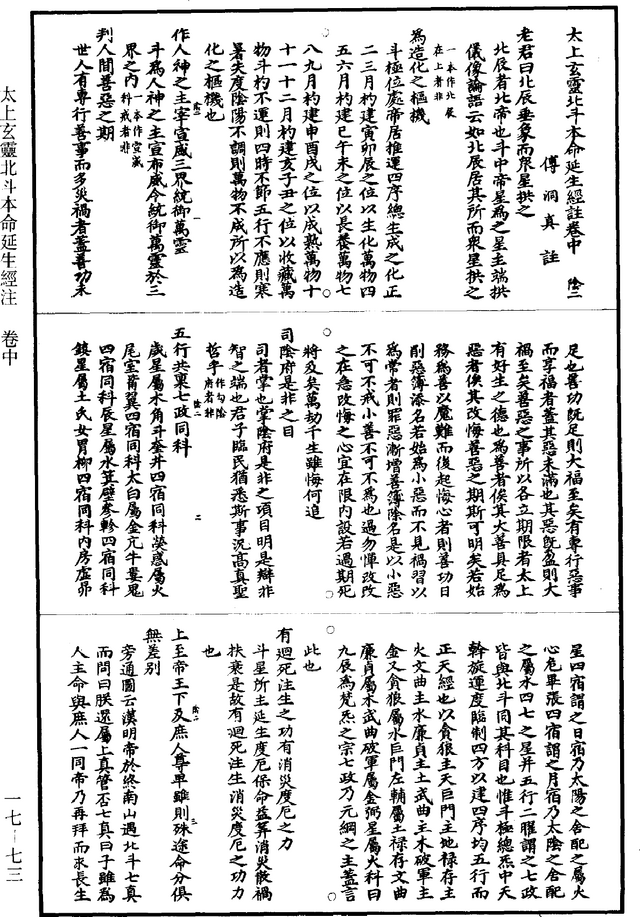 太上玄靈北斗本命延生經註卷中　陰二
傅洞真註
老君曰北辰垂象而眾星拱之
北辰者北帝也斗中帝星為之星主端拱
儀像論語云如北辰居其所而眾星拱之
一本作北晨
在上者非
為造化之樞機
斗極位處帝居推運四序總生成之化正
二三月杓建寅卯辰之位以生化萬物四
五六月杓建巳午未之位以長養萬物七
八九月杓建申酉戌之位以成熟萬物十
十一十二月杓建亥子丑之位以收藏萬
物斗杓不運則四時不節五行不應則寒
暑失度陰陽不調則萬物不成所以為造
化之樞機也
作人神之主宰宣威三界統御萬靈
斗為人神之主宣布威令統御萬靈於三
界之內一本作宣威
科戒者非
判人間善惡之期
世人有專行善事而多災禍者蓋善功未
足也善功既足則大福至矣有專行惡事
而享福者蓋其惡未滿也其惡既盈則大
禍至矣善惡之事所以各立期限者太上
有好生之德也為善者俟其大善具足為
惡者俟其改悔善惡之期斯可明矣若始
務為善以魔難而後起悔心者則善功日
削惡簿添名若始為小惡而不見禍習以
為常者則罪惡漸增善簿除名是以小惡
不可不戒小善不可不為也過勿憚改改
之在急改悔之心宜在限內設若過期死
將及矣萬劫千生雖悔何追
司陰府是非之目
司者掌也掌陰府是非之項目明是辯非
智之端也君子臨民猶悉斯事況高真聖
哲乎作勾陰
府者非
五行共稟七政同科
歲星屬木角斗奎井四宿同科熒惑屬火
尾室觜翼四宿同科太白屬金亢牛婁鬼
四宿同科辰星屬水箕壁參軫四宿同科
鎮星屬土氐女胃柳四宿同科內房虛昴
星四宿謂之日宿乃太陽之舍配之屬火
心危畢張四宿謂之月宿乃太陰之舍配
之屬水四七之星并五行二曜謂之七政
皆與北斗同其科目也惟斗極總炁中天
斡旋運度臨制四方以建四序均五行而
正天經也以貪狼主天巨門主地祿存主
火文曲主水廉貞主土武曲主木破軍主
金又貪狼屬水巨門左輔屬土祿存文曲
廉貞屬木武曲破軍屬金弼星屬火科曰
九辰為梵炁之宗七政乃元綱之主蓋言
此也
有迴死注生之功有消災度厄之力
斗星所主延生度厄保命益筭消災散禍
扶衰是故有迴死注生消災度厄之功力
也
上至帝王下及庶人尊卑雖則殊途命分俱
無差別
旁通圖云漢明帝於終南山遇北斗七真
而問曰朕還屬上真管否七真曰子雖為
人主命與庶人一同帝乃再拜而求長生
太上玄靈北斗本命延生經注　卷中
一七—七三